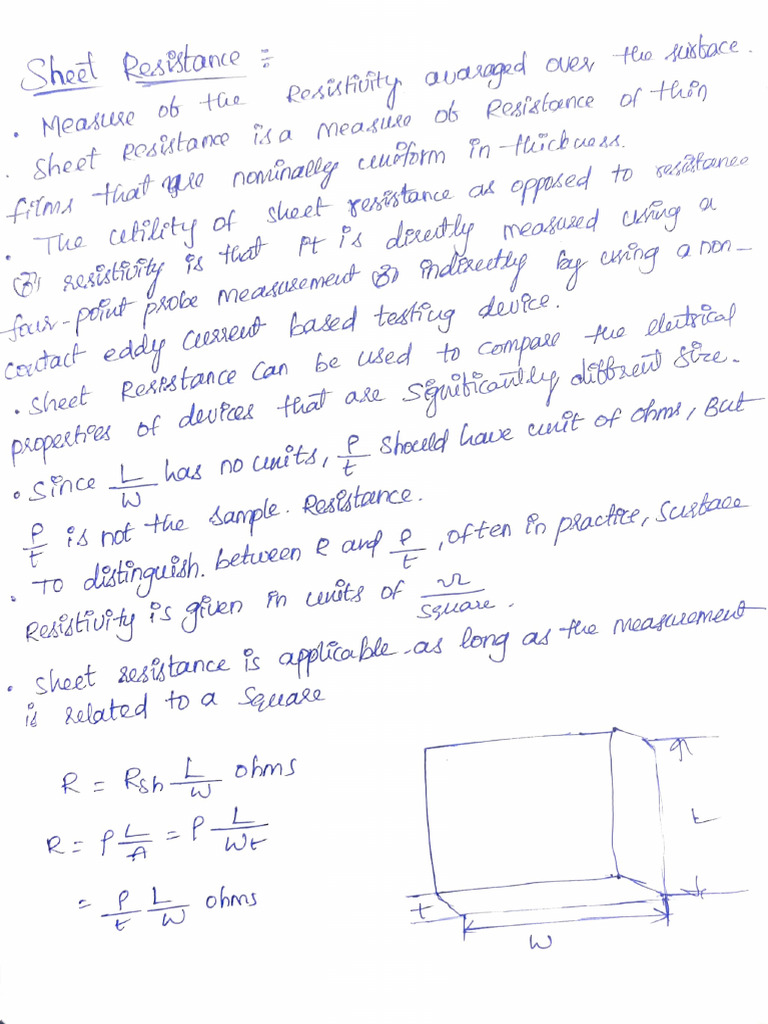 Sheet Resistance :
• Measure of the Resistivity averaged over the surface.
. Sheet Resistance is a measure of Resistance of thin
films that are nominally uniform in thickness.
• The utility of sheet resistance as opposed to resistance
(or) resistivity is that it is directly measured using a
four-point probe measurement (or) indirectly by using a non-
contact eddy current based testing device.
• Sheet Resistance can be used to compare the electrical
properties of devices that are significantly different size.
• Since L/W has no units, ρ/t should have unit of ohms, But
ρ/t is not the sample. Resistance.
• To distinguish. between R and ρ/t, often in practice, Surface
Resistivity is given in units of Ω/square.
• Sheet resistance is applicable as long as the measurement
is related to a square
R = Rsh L/W ohms
R = ρ L/A = ρ L/Wt
= ρ/t L/W ohms
t
W
L